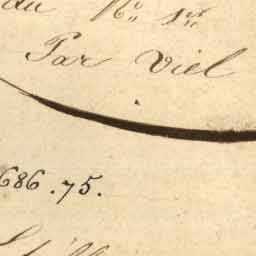 du N° 1er
Par Viel
686.75.